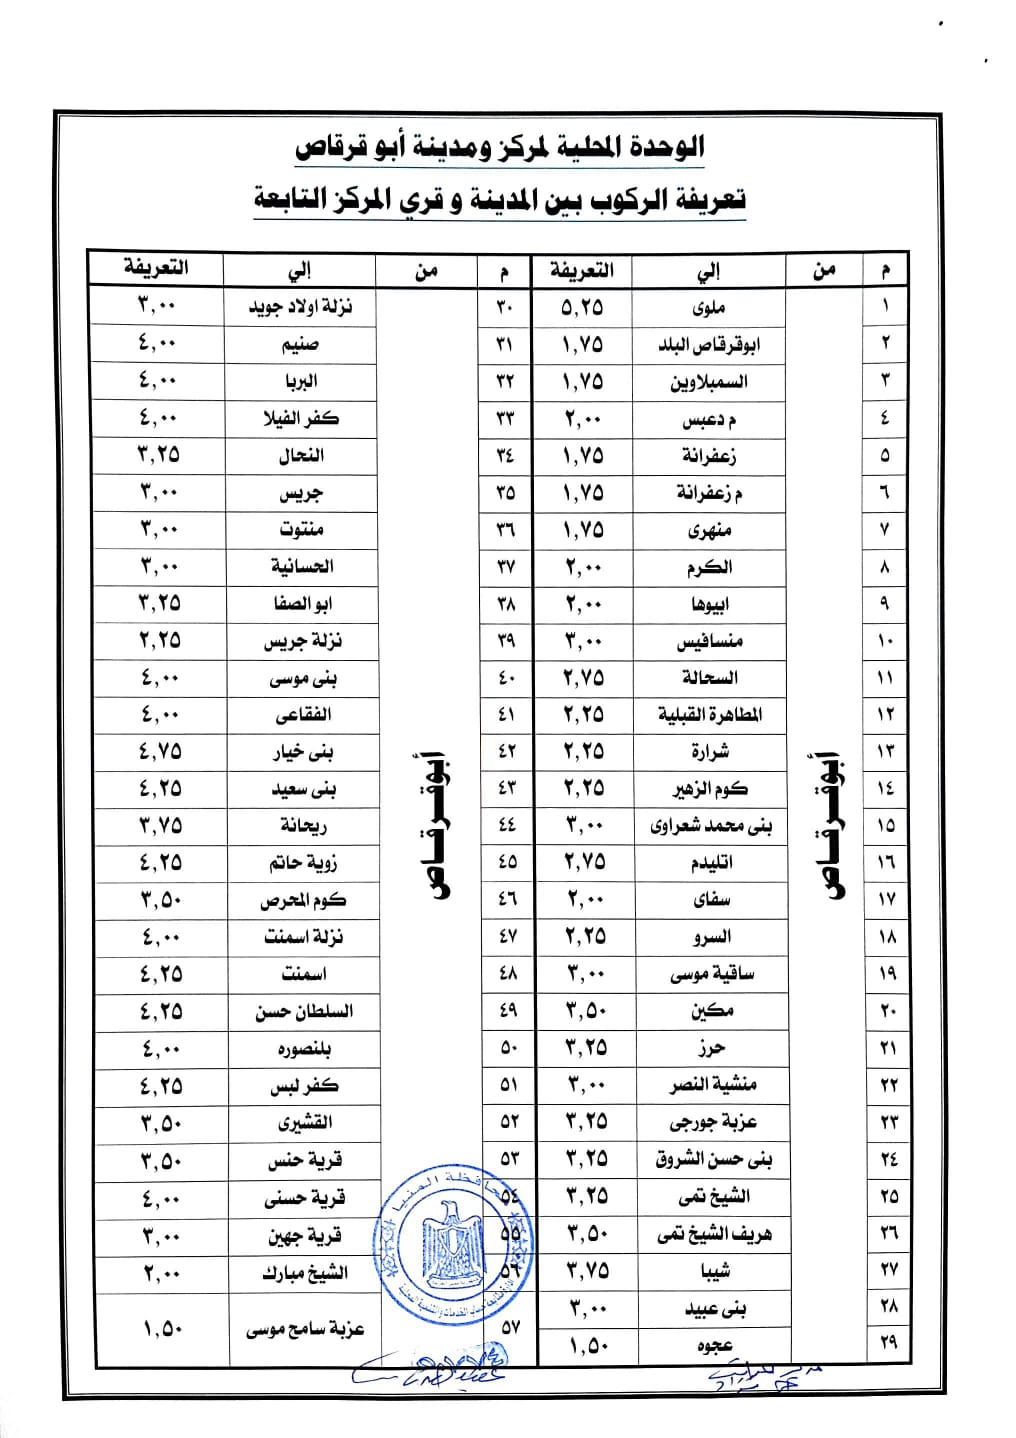 الوحدة المحلية لمركز ومدينة أبو قرقاص
تعريفة الركوب بين المدينة و قري المركز التابعة
م من إلي التعريفة م من إلي التعريفة
١ ملوى ٥,٢٥ ٣٠ نزلة اولاد جويد ٣,٠٠
٢ ابوقرقاص البلد ١,٧٥ ٣١ صنيم ٤,٠٠
٣ السمبلاوين ١,٧٥ ٣٢ البربا ٤,٠٠
٤ م دعبس ٢,٠٠ ٣٣ كفر الفيلا ٤,٠٠
٥ زعفرانة ١,٧٥ ٣٤ النحال ٣,٢٥
٦ م زعفرانة ١,٧٥ ٣٥ جريس ٣,٠٠
٧ منهرى ١,٧٥ ٣٦ منتوت ٣,٠٠
٨ الكرم ٢,٠٠ ٣٧ الحسانية ٣,٠٠
٩ ابيوها ٢,٠٠ ٣٨ ابو الصفا ٣,٢٥
١٠ منسافيس ٣,٠٠ ٣٩ نزلة جريس ٢,٢٥
١١ السحالة ٢,٧٥ ٤٠ بنى موسى ٤,٠٠
١٢ المطاهرة القبلية ٢,٢٥ ٤١ الفقاعى ٤,٠٠
١٣ شرارة ٢,٢٥ ٤٢ بنى خيار ٤,٧٥
١٤ كوم الزهير ٢,٢٥ ٤٣ بنى سعيد ٤,٢٥
١٥ بنى محمد شعراوى ٣,٠٠ ٤٤ ريحانة ٣,٧٥
أبوقرقاص أبوقرقاص
١٦ اتليدم ٢,٧٥ ٤٥ زوية حاتم ٤,٢٥
١٧ سفاى ٢,٠٠ ٤٦ كوم المحرص ٣,٥٠
١٨ السرو ٢,٢٥ ٤٧ نزلة اسمنت ٤,٠٠
١٩ ساقية موسى ٣,٠٠ ٤٨ اسمنت ٤,٢٥
٢٠ مكين ٣,٥٠ ٤٩ السلطان حسن ٤,٢٥
٢١ حرز ٣,٢٥ ٥٠ بلنصوره ٤,٠٠
٢٢ منشية النصر ٣,٠٠ ٥١ كفر لبس ٤,٢٥
٢٣ عزبة جورجى ٣,٢٥ ٥٢ القشيرى ٣,٥٠
٢٤ بنى حسن الشروق ٣,٢٥ ٥٣ قرية حنس ٣,٥٠
٢٥ الشيخ تمى ٣,٢٥ ٥٤ قرية حسنى ٤,٠٠
٢٦ هريف الشيخ تمى ٣,٥٠ ٥٥ قرية جهين ٣,٠٠
٢٧ شيبا ٣,٧٥ ٥٦ الشيخ مبارك ٢,٠٠
٢٨ بنى عبيد ٣,٠٠ ٥٧ عزبة سامح موسى ١,٥٠
٢٩ عجوه ١,٥٠
محافظة المنيا